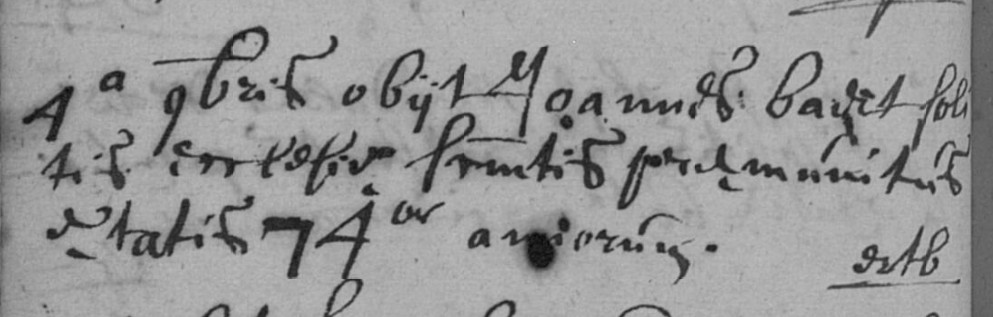 4a 9bris obijt Joannes badet soli
tis ecclesiae scmtis praemunitus
aetatis 74or annorum.